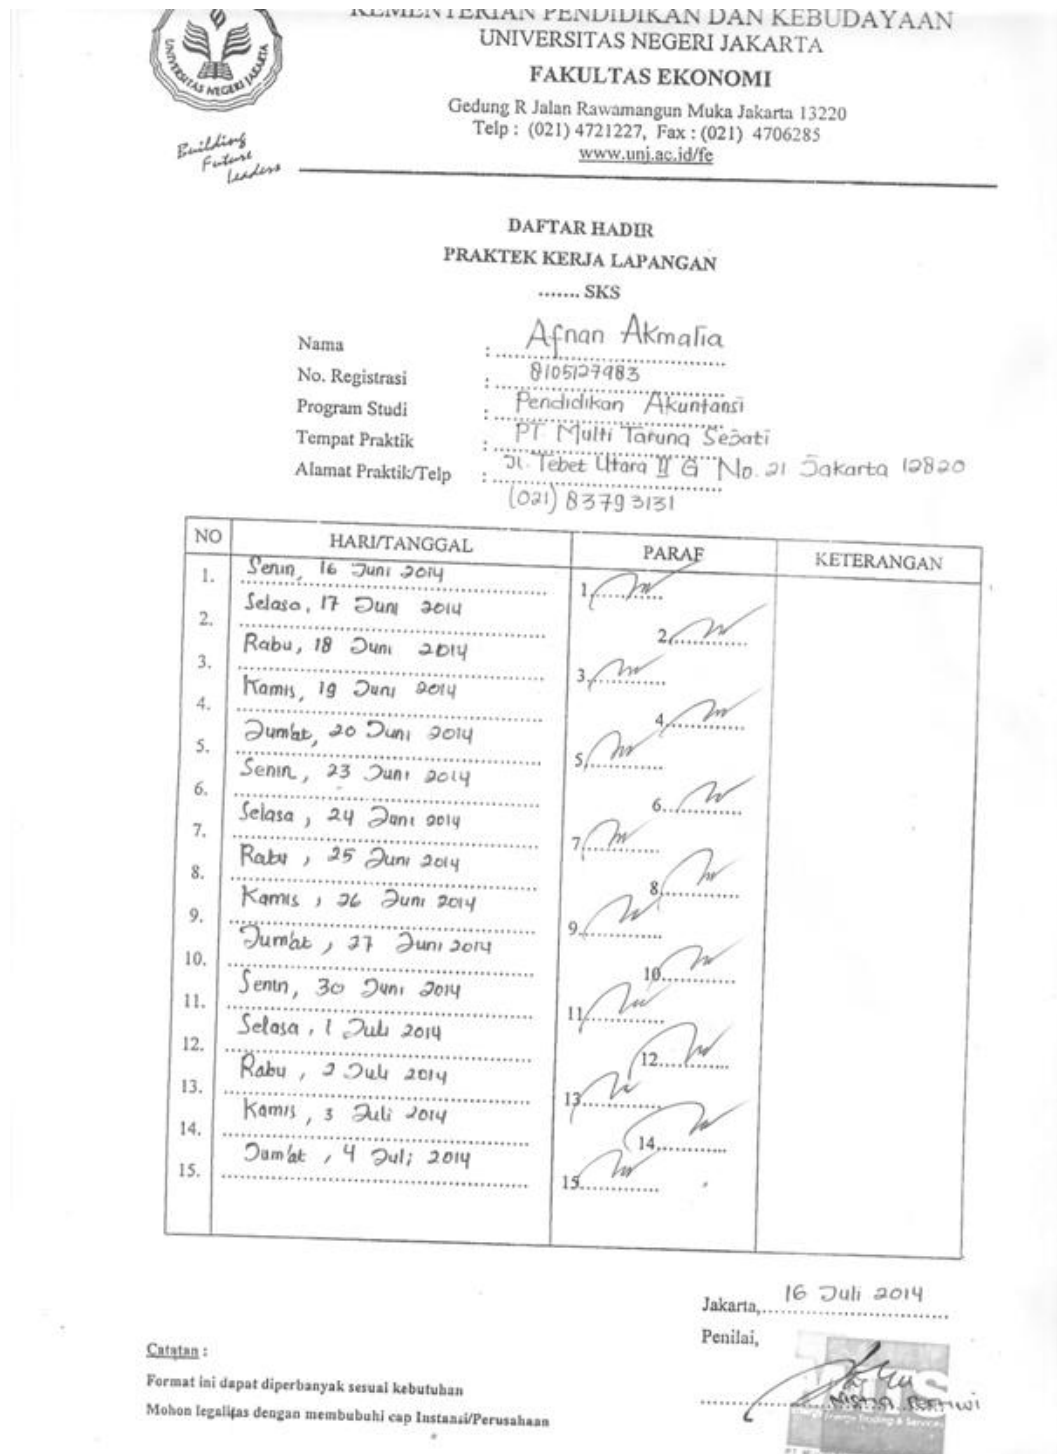 KEMENTERIAN PENDIDIKAN DAN KEBUDAYAAN
UNIVERSITAS NEGERI JAKARTA
FAKULTAS EKONOMI
Gedung R Jalan Rawamangun Muka Jakarta 13220
Telp : (021) 4721227, Fax : (021) 4706285
www.unj.ac.id/fe
UNIVERSITAS NEGERI JAKARTA
Building
Future
Leaders
DAFTAR HADIR
PRAKTEK KERJA LAPANGAN
....... SKS
Nama : Afnan Akmalia
No. Registrasi : 8105127983
Program Studi : Pendidikan Akuntansi
Tempat Praktik : PT Multi Taruna Sejati
Alamat Praktik/Telp : Jl. Tebet Utara II G No. 21 Jakarta 12820
(021) 83793131
NO HARI/TANGGAL PARAF KETERANGAN
1. Senin, 16 Juni 2014 1.
2. Selasa, 17 Juni 2014 2.
3. Rabu, 18 Juni 2014 3.
4. Kamis, 19 Juni 2014 4.
5. Jum'at, 20 Juni 2014 5.
6. Senin, 23 Juni 2014 6.
7. Selasa, 24 Juni 2014 7.
8. Rabu, 25 Juni 2014 8.
9. Kamis, 26 Juni 2014 9.
10. Jum'at, 27 Juni 2014 10.
11. Senin, 30 Juni 2014 11.
12. Selasa, 1 Juli 2014 12.
13. Rabu, 2 Juli 2014 13.
14. Kamis, 3 Juli 2014 14.
15. Jum'at, 4 Juli 2014 15.
Jakarta, 16 Juli 2014
Penilai,
Catatan :
Format ini dapat diperbanyak sesuai kebutuhan
Mohon legalitas dengan membubuhi cap Instansi/Perusahaan